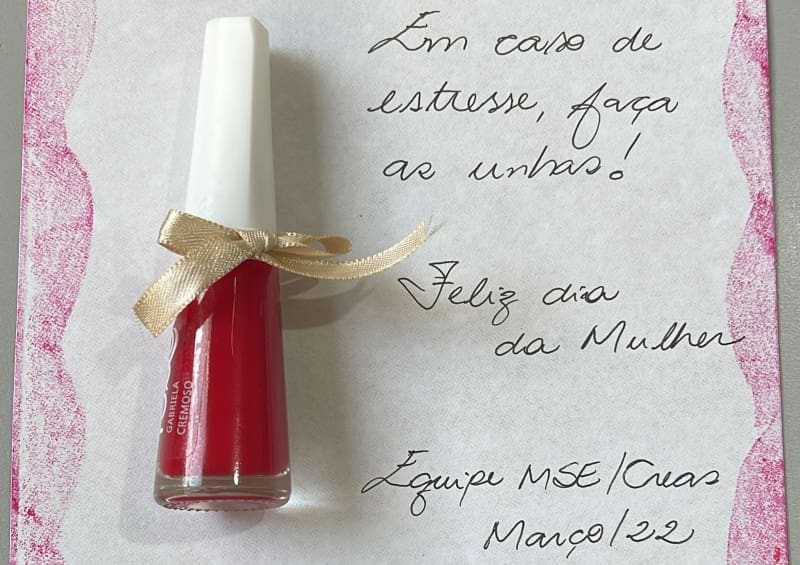 Em caso de
estresse, faça
as unhas!
Feliz dia
da Mulher
Equipe MSE/Creas
Março/22
GABRIELA
CREMOSO